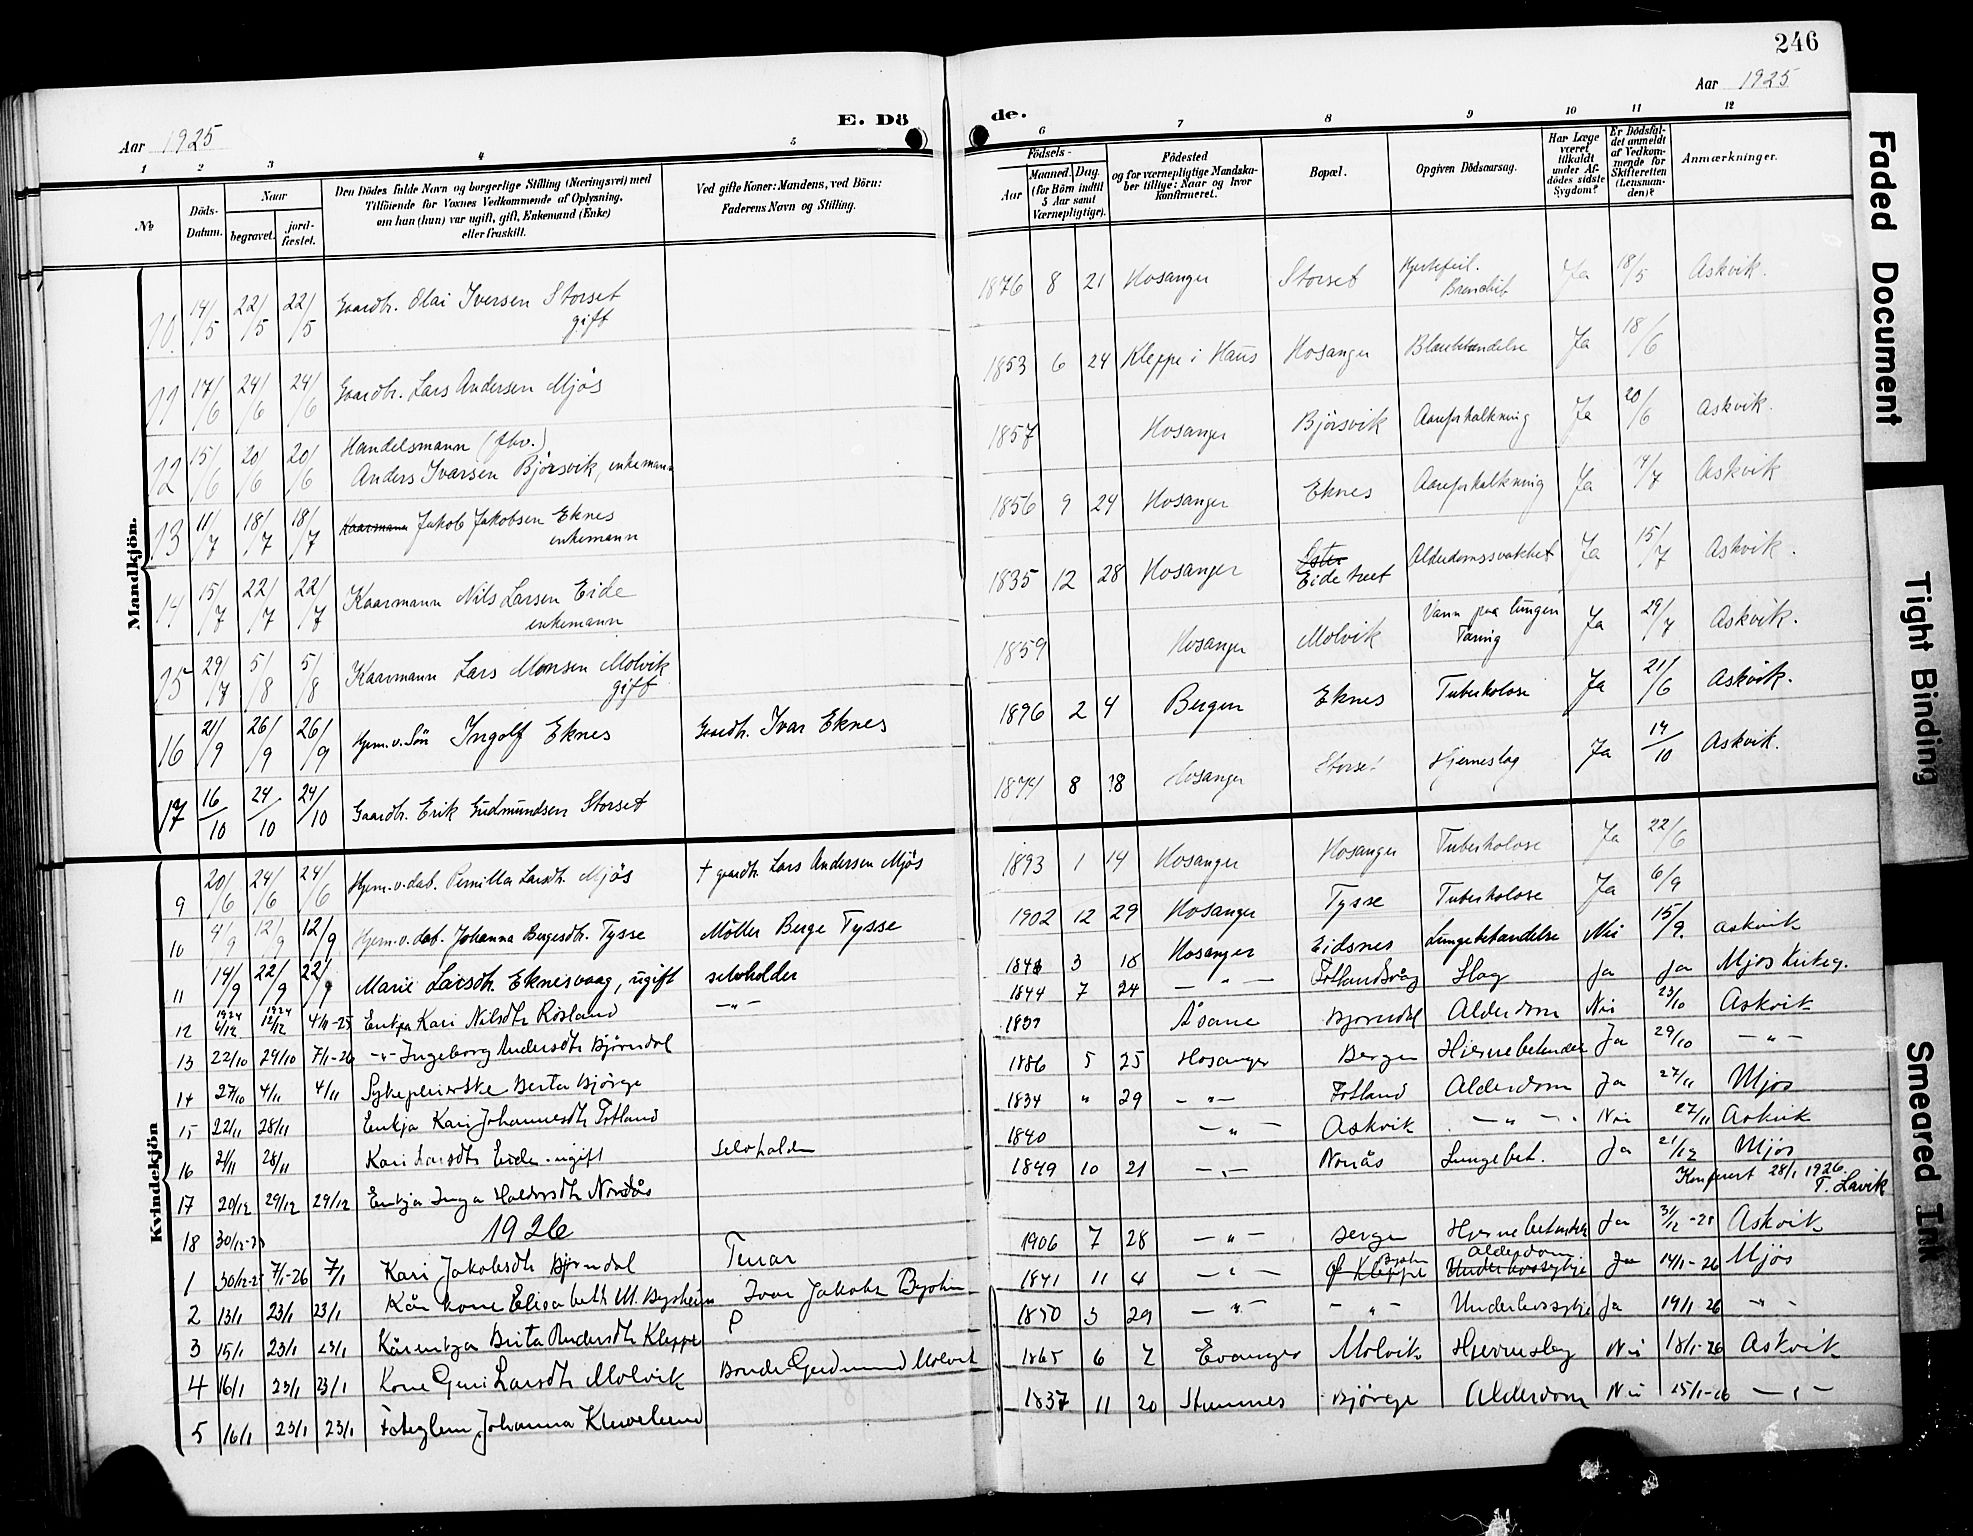 246
Aar 1925
Aar 1925
E. Dö
de.
1 2 3 4 5
6 7 8 9 10 11 12
№
Döds-Datum.
Naar
begravet.
jord-fæstet.
Den Dödes fulde Navn og borgerlige Stilling (Næringsvei) med
Tilföiende for Voxnes Vedkommende af Oplysning,
om han (hun) var ugift, gift, Enkemand (Enke)
eller fraskilt.
Ved gifte Koner: Mandens, ved Börn:
Faderens Navn og Stilling.
Födsels-
Aar
Maaned. Dag.
(for Börn indtil
5 Aar samt
Værnepligtige).
Födested
og for værnepligtige Mandska-
ber tillige: Naar og hvor
konfirmeret.
Bopæl.
Opgiven Dödsaarsag.
Har Læge
været
tilkaldt
under Af-
dödes sidste
Sygdom?
Er Dödsfal-
det anmeldt
af Vedkom-
mende for
Skifteretten
(Lensman-
den)?
Anmærkninger.
Mandkjön.
10 14/5 22/5 22/5 Gaardbr. Olai Iversen Storset
gift
1876 8 21 Hosanger Storset Hjertefeil. Ja 18/5 Askvik.
11 17/6 24/6 24/6 Gaardbr. Lars Andersen Mjøs
1853 6 24 Kleppe i Haus Hosanger Ja 18/6
12 15/6 20/6 20/6 Handelsmann (fhv.)
Anders Ivarsen Bjørsvik, enkemann
1857 Hosanger Bjørsvik Aareforkalkning Ja 20/6 Askvik.
13 11/7 18/7 18/7 Kaarmann Jakob Jakobsen Eknes
enkemann
1856 9 24 Hosanger Eknes Aareforkalkning Ja 14/7 Askvik
14 15/7 22/7 22/7 Kaarmann Nils Larsen Eide
enkemann
1835 12 28 Hosanger Eidetveet Alderdomssvakhet Ja 15/7 Askvik.
15 29/7 5/8 5/8 Kaarmann Lars Monsen Molvik
gift
1859 Hosanger Molvik Vann paa lungen Ja 29/7 Askvik.
16 21/9 26/9 26/9 Hjem.v. Søn Ingolf Eknes Gaardb. Ivar Eknes
1896 2 4 Bergen Eknes Tuberkolose Ja 21/6 Askvik.
17 16/10 24/10 24/10 Gaardb. Erik Gudmundsen Storset
1874 8 18 Hosanger Storset Hjerneslag Ja 14/10 Askvik.
Kvindekjön
9 20/6 24/6 24/6 Hjem.v.dat. Pernilla Larsdt. Mjøs + gaardb. Lars Andersen Mjøs
1893 1 14 Hosanger Hosanger Tuberkolose Ja 22/6
10 4/9 12/9 12/9 Hjem.v.dat. Johanna Bergesdt. Tysse Møller Berge Tysse
1902 12 29 Hosanger Tysse Tuberkolose Ja 6/9
11 14/9 22/9 22/9 Marie Larsdt. Eknesvaag, ugift selvholder
1848 3 18 Hosanger Eidsnes Lungebetændelse Nei 15/9. Askvik
12 1924 4/12 1924 12/12 4/11-25 Enkja Kari Nilsdtr Røsland — " —
1844 7 24 — " — Fotlandsvåg Slag Ja Ja Mjøs Kirkeg.
13 22/10 29/10 7/1-26 — " — Ingeborg Andersdtr Bjørndal
1837 Åsane Bjørndal Alderdom Nei 23/10 Askvik
14 27/10 4/11 4/11 Sykepleierske Berta Bjørge
1886 5 25 Hosanger Bergen Hjernebetendel Ja 29/10 — " —
15 22/11 28/11 Enkja Kari Johannesdtr Fotland
1834 " 29 — " — Fotland Alderdom Ja 27/11 Mjøs
16 21/11 28/11 Kari Larsdtr Eide ugift selvholder
1840 — " — Askvik — " — Nei 27/11 Askvik
17 20/12 29/12 29/12 Enkja Inga Haldorsdtr Nordås
1849 10 21 — " — Nordås Lungebet. Ja 21/12 Mjøs
Konferert 28/1 1926.
T. Lavik
18 30/12-25
1926
1 30/12-25 7/1-26 7/1 Kari Jakobsdtr Bjørndal Tenar
1906 7 28 — " — Bergen Hjernebetendels Ja 31/12-25 Askvik
2 13/1 23/1 23/1 Kårkone Elisabeth M. Bysheim Ivar Jakobs Bysheim
1841 11 4 — " — Ø Kleppe Bysheim Underlivssykje Alderdom Ja 14/1-26 Mjøs
3 15/1 23/1 23/1 Kårenkja Brita Andersdtr Kleppe
1850 3 29 — " — — " — Underlivssykje Ja 19/1-26 — " —
4 16/1 23/1 23/1 Kone Guri Larsdtr Molvik Bonde Gudmund Molvik
1865 6 7 Evanger Molvik Hjerneslag Nei 18/1-26 Askvik
5 16/1 23/1 23/1 Johanna
1837 11 20 Hamnes Bjørge Alderdom Nei 25/1-26 — " —
Faded Document
Tight Binding
Smeared Ink